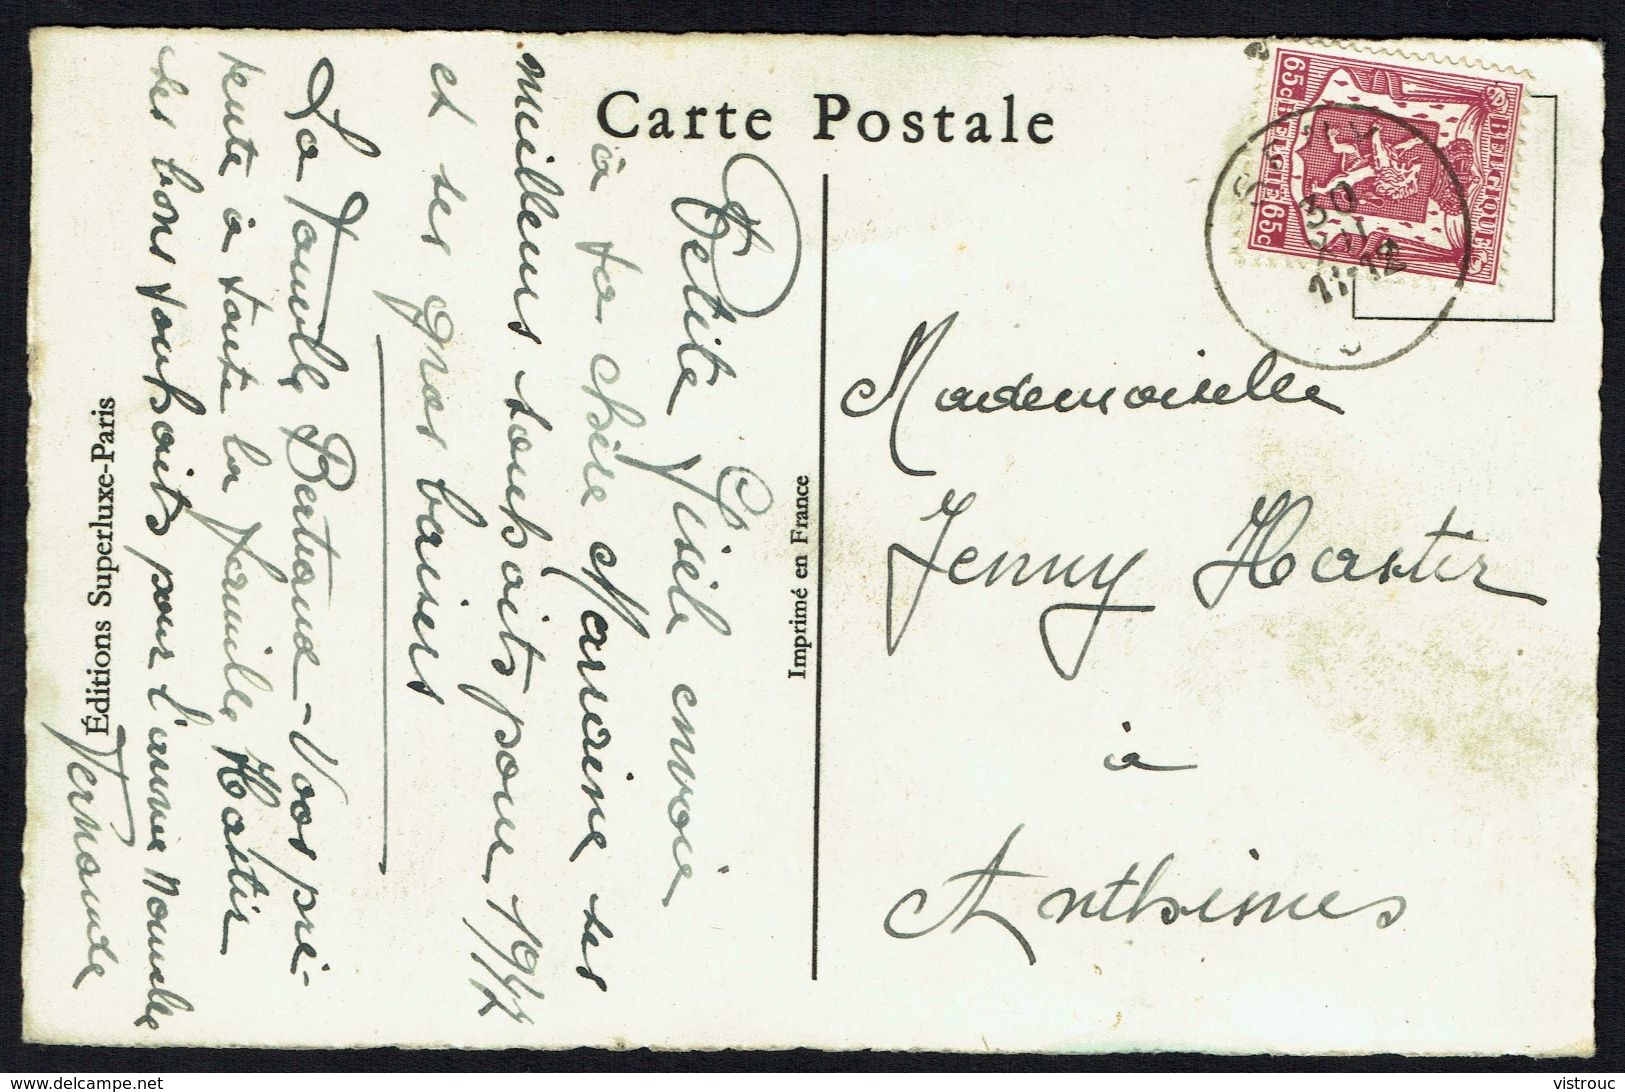 Carte Postale
Petite Gisèle envoie
à sa chère Marraine ses
meilleurs souhaits pour 1947
et ses gros baisers
La Famille Bertrand - Vos pré-
sente à toute la famille Hastir
ses bons souhaits pour l'année nouvelle
Fernande
Éditions Superluxe-Paris
Imprimé en France
BELGIQUE
65c
65c
30
XII
11-12
Mademoiselle
Jenny Hastir
à
Anthisnes
delcampe.net
vistrouc